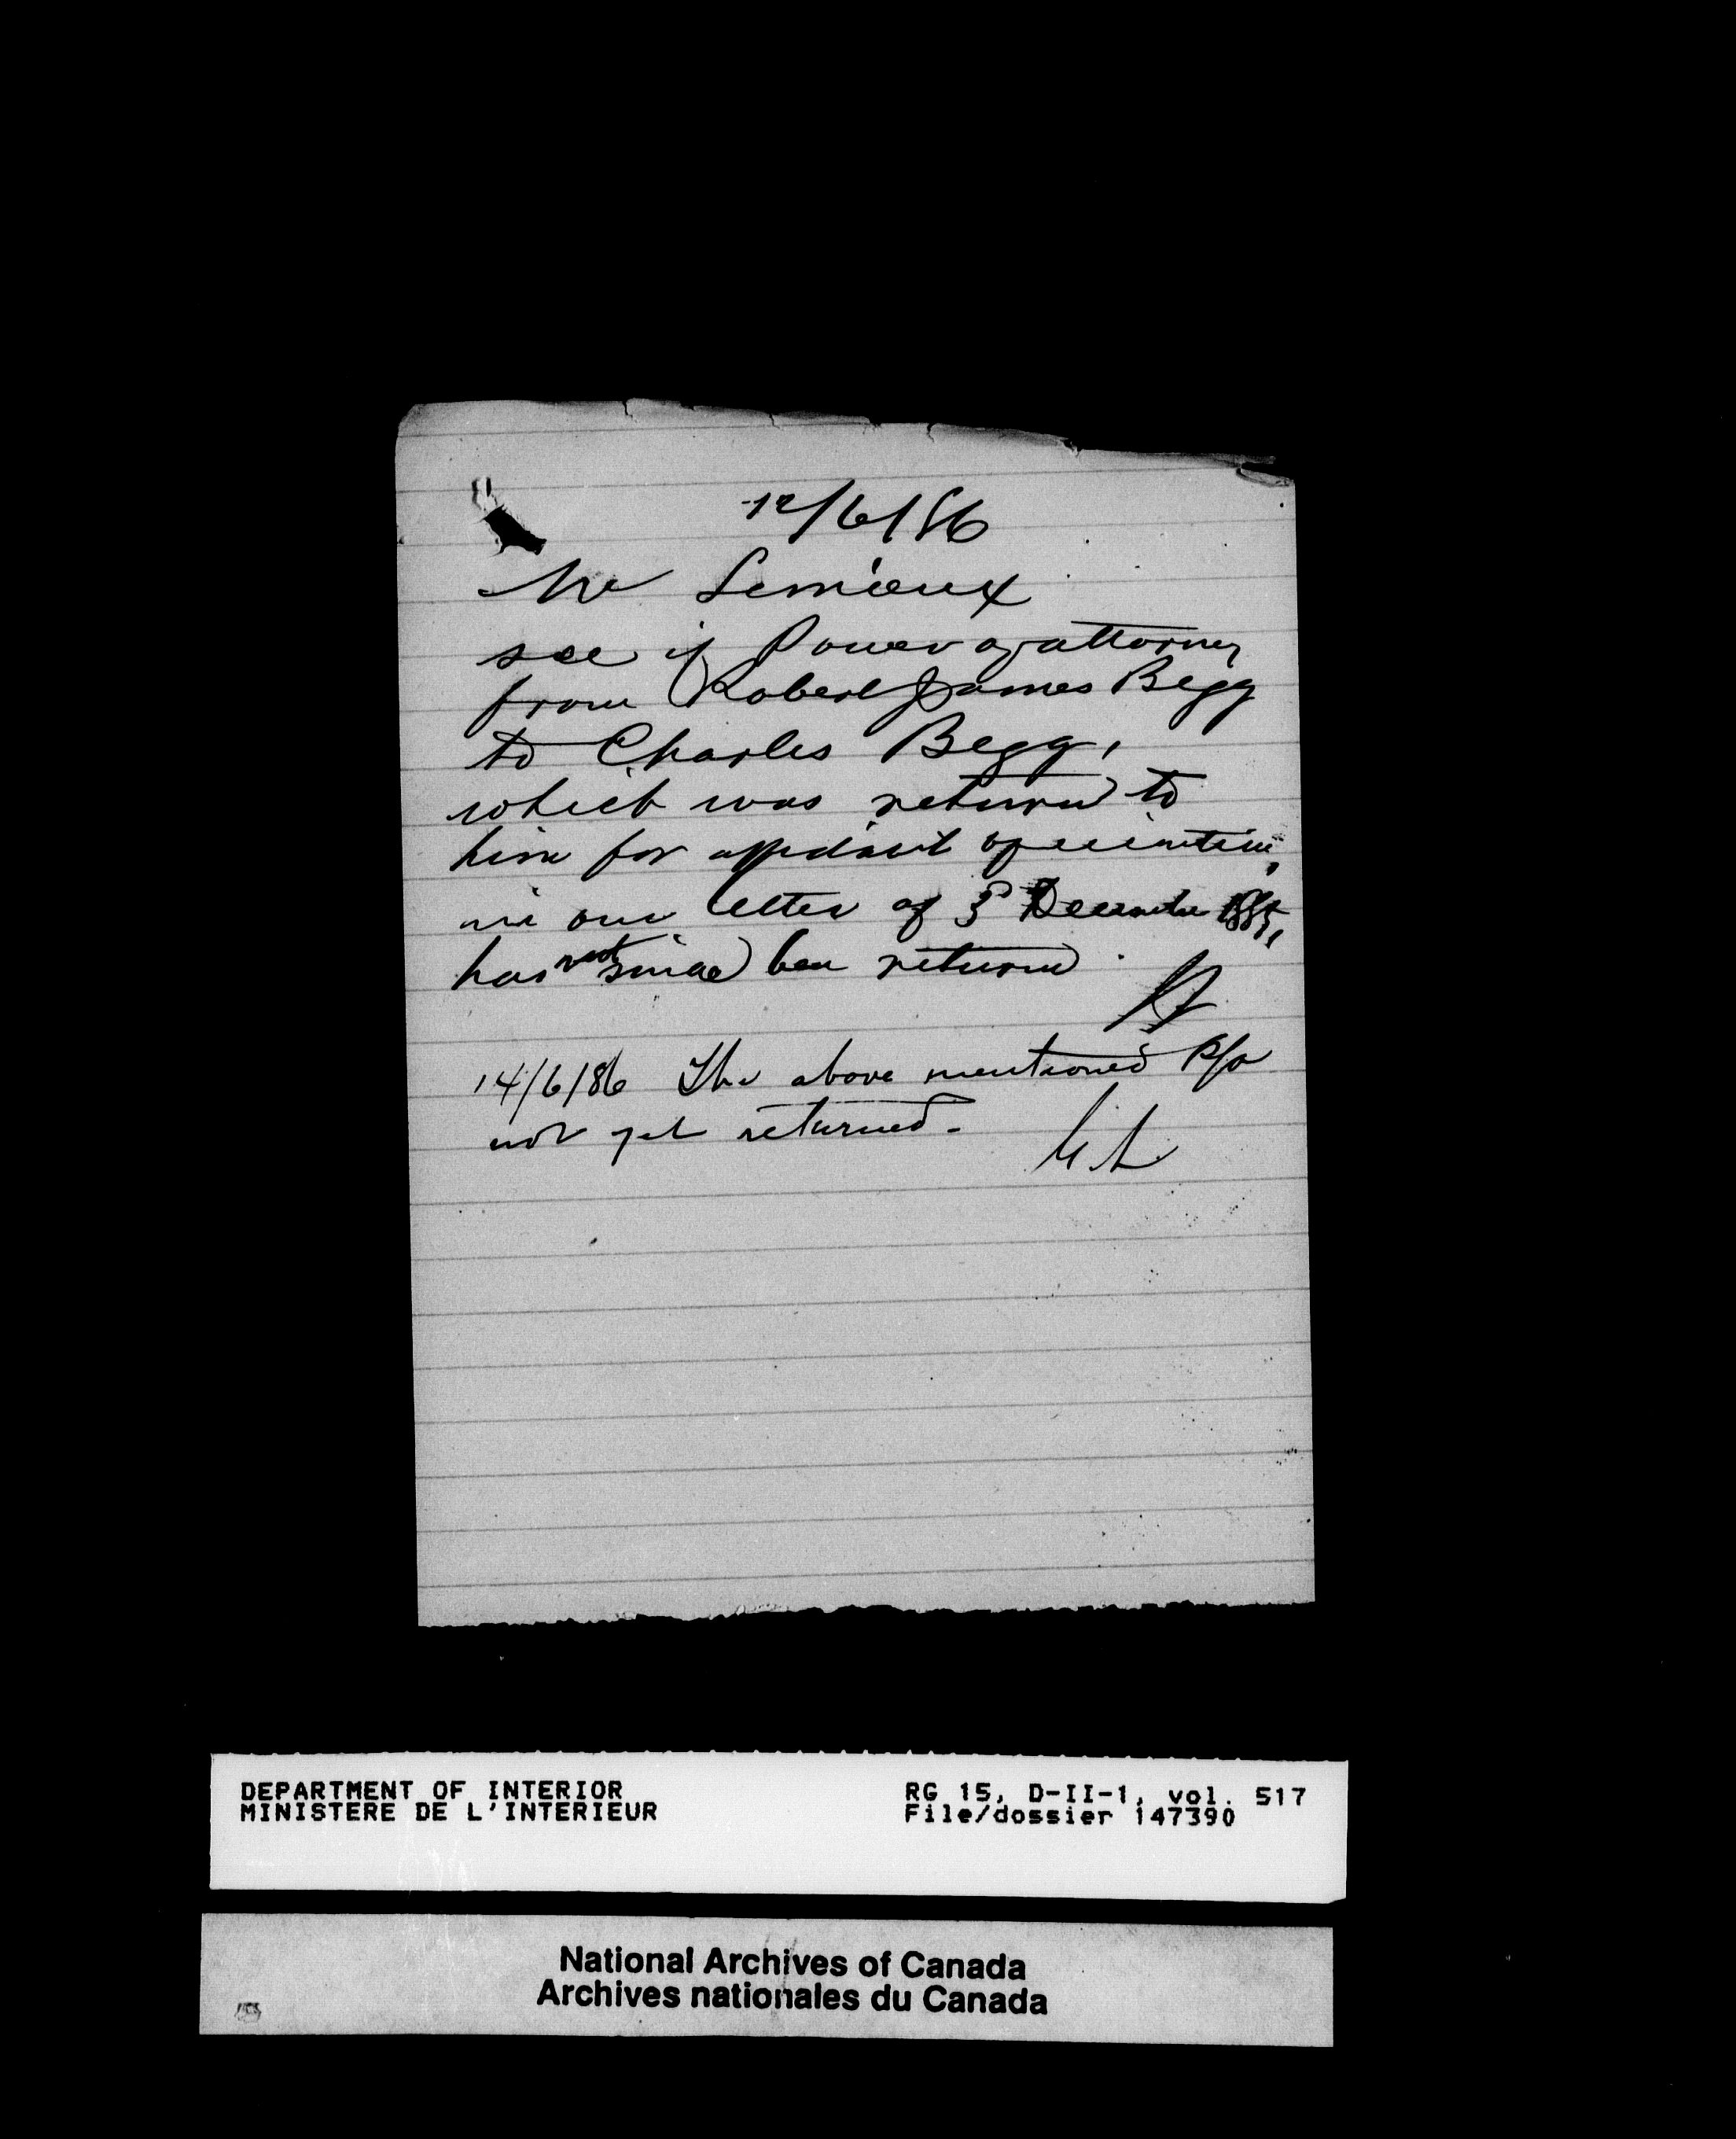 12/6/86
Mr Lemieux
see if Power of attorney
from Robert James Begg
to Charles Begg,
which was returned to
him for affidavit of execution,
in our letter of 3d December 1885,
has not since been returned.
14/6/86 The above mentioned P/a
not yet returned.
DEPARTMENT OF INTERIOR
MINISTERE DE L'INTERIEUR
RG 15, D-II-1, vol. 517
File/dossier 147390
National Archives of Canada
Archives nationales du Canada